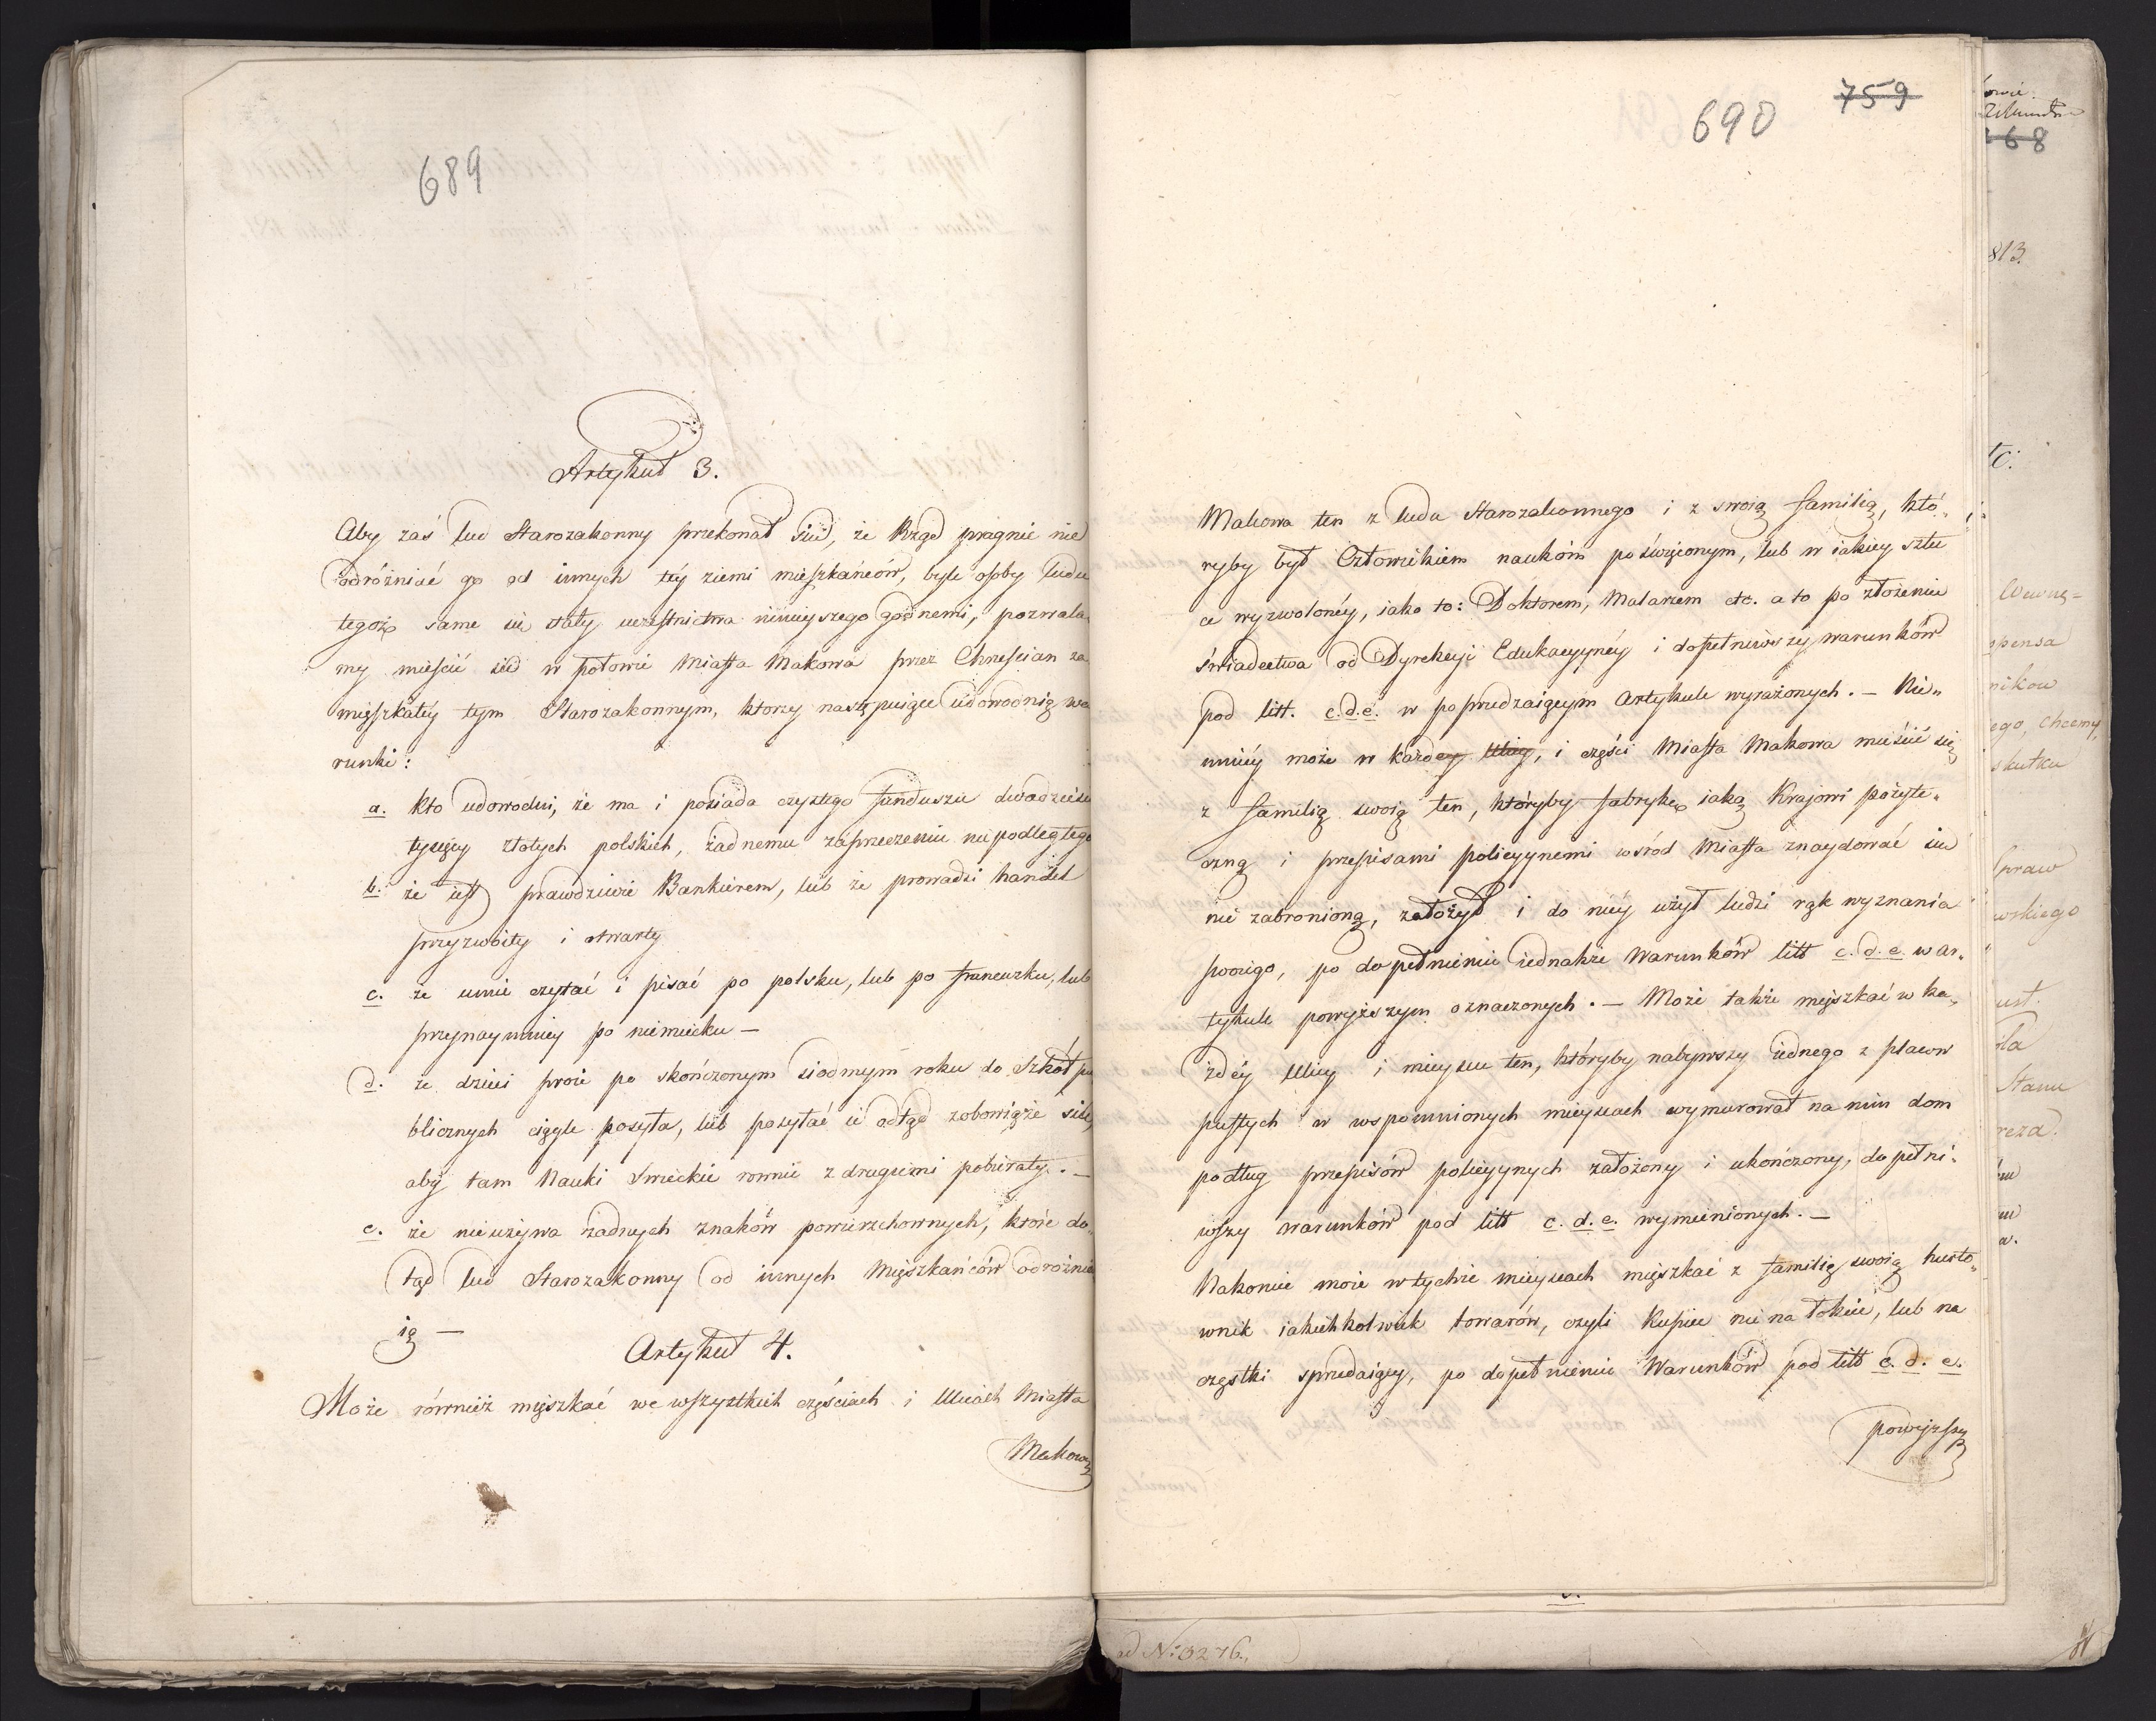 689
Artykuł 3.
Aby zaś lud Starozakonny przekonał się, że Rząd pragnie nie
odróżniać go od innych téy ziemi mieszkańców, byle osoby ludu
tegoż same się stały uczestnictwa ninieyszego godnemi, pozwala„
my mieścić się w połowie Miasta Makowa przez Chrześcian za
mieszkałéy tym Starozakonnym, ktorzy następuiące udowodnią wa
runki:
a. kto udowodni, że ma i posiada czystego funduszu dwadzieścia
tysięcy złotych polskich, żadnemu zaprzeczeniu niepodległego
b. że iest prawdziwie Bankierem, lub że prowadzi handel
przyzwoity i otwarty
c. że umie czytać i pisać po polsku, lub po francuzku, lub
przynaymniey po niemiecku —
d. że dzieci swoie po skończonym siodmym roku do Szkół pu
blicznych ciągle posyła, lub posyłać ie odtąd zobowiąże się,
aby tam Nauki Swieckie rownie z drugiemi pobierały. —
e. że nieużywa żadnych znaków powierzchownych, które do„
tąd lud Starozakonny od innych Mieszkańców odróżnia
ią —
Artykuł 4.
Może również mieszkać we wszystkich częściach i Ulicach Miasta
Makowa
690
759
Makowa ten z ludu Starozakonnego i z swoią familią, któ„
ryby był Człowiekiem naukóm poświęconym, lub w iakiey sztu
ce wyzwolonéy, iako to: Doktorem, Malarzem etc. a to po złożeniu
świadectwa od Dyrekcyi Edukacyynéy i dopełniwszy warunków
pod litt. c. d. e. w poprzedzaiącym Artykule wyrażonych. — Nie„
mniéy może w każdey Ulicy, i części Miasta Makowa mieścić się
z familią swoią ten, któryby fabrykę iaką Kraiowi pożyte„
czną i przepisami policyynemi wśród Miasta znaydować się
nie zabronioną, założył i do niéy użył ludzi rąk wyznania
swoiego, po dopełnieniu iednakże Warunków litt c. d. e. w ar„
tykule powyższym oznaczonych. — Może także mieszkać w ka„
żdéy Ulicy i mieyscu ten, któryby nabywszy iednego z placow
pustych w wspomnionych mieyscach wymurował na nim dom
podług przepisów policyynych założony i ukończony, dopełni„
wszy warunków pod litt c. d. e. wymienionych. —
Nakoniec może w tychże mieyscach mieszkać z familią swoią hurto„
wnik iakichkolwiek towarów, czyli Kupiec nie na łokcie, lub na
cząstki sprzedaiący, po dopełnieniu Warunków pod litt c. d. e.
powyższy
ad N: 3276.
813.
268
Wewnę=
spensa
nikow
ego, Chcemy,
skutku
Spraw
wskiego
Stanu